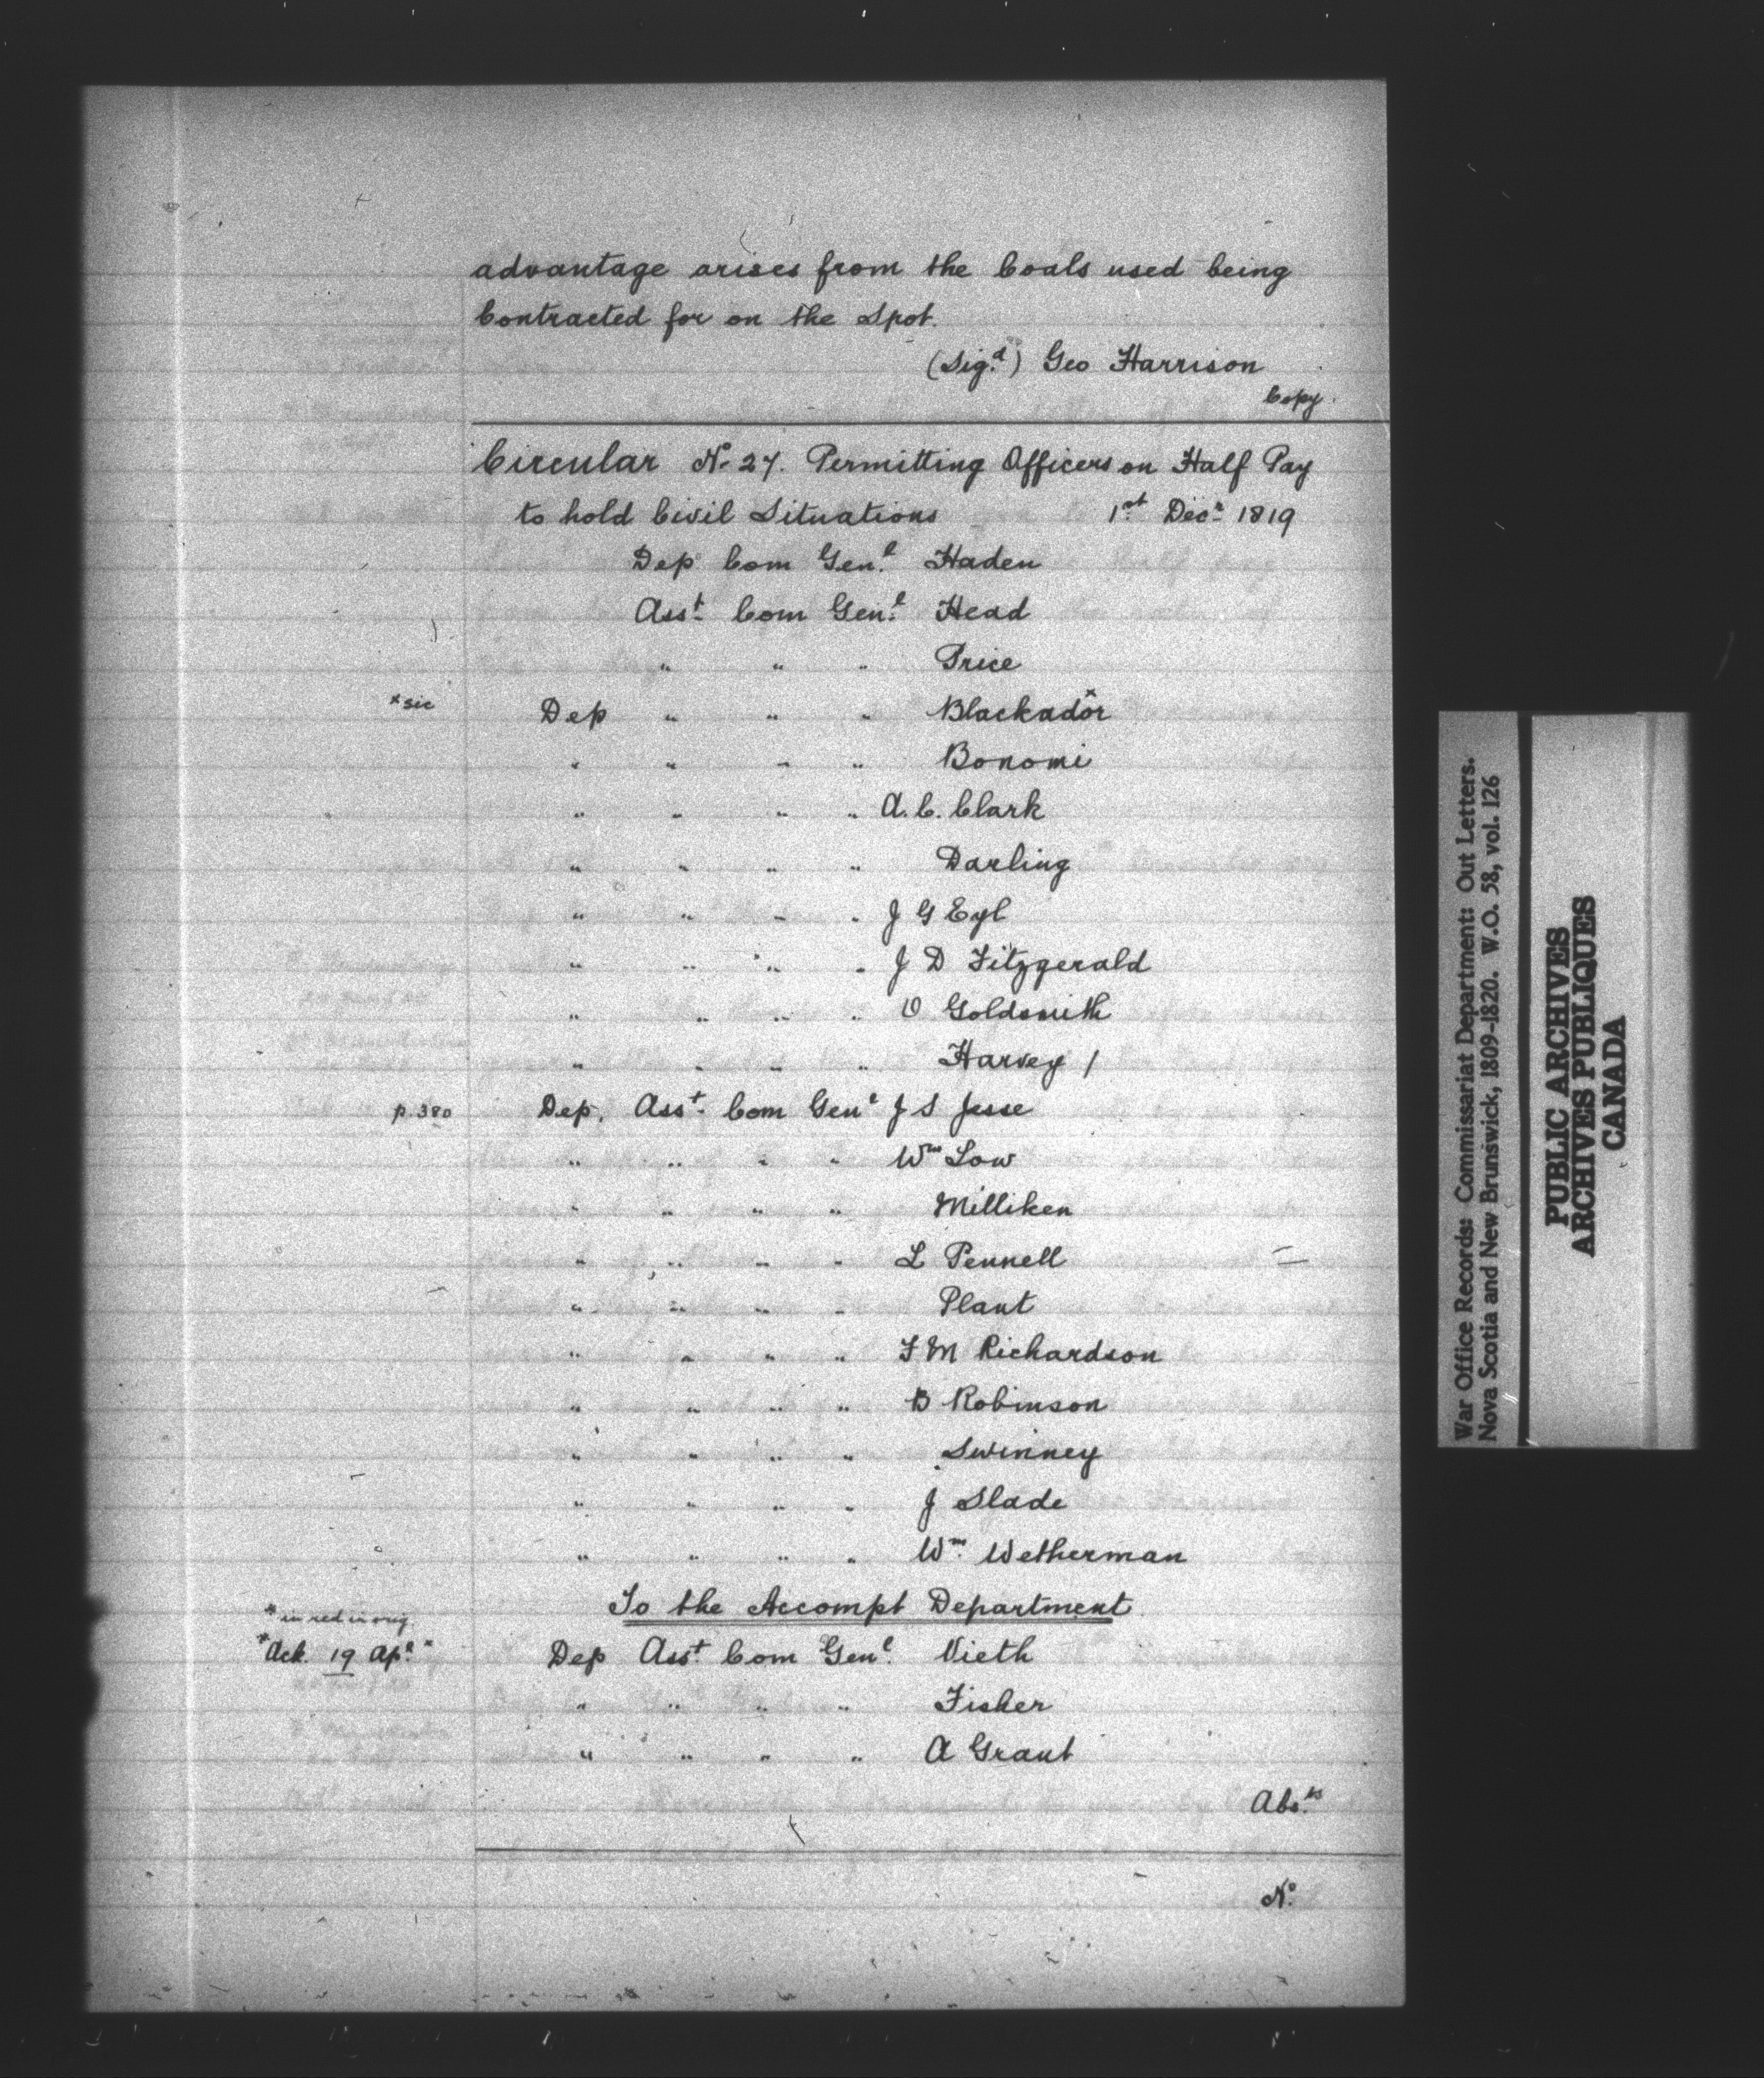 advantage arises from the Coals used being
Contracted for on the Spot.
(Sig.d) Geo Harrison
Copy.
Circular No. 27. Permitting Officers on Half Pay
to hold Civil Situations 1st Decr 1819
Dep Com Gen.l Haden
Asst Com Gen.l Head
" " " Price
*sic Dep " " " Blackador*
" " " " Bonomi
" " " " A. C. Clark
" " " " Darling
" " " " J G Eyl
" " " " J D Fitzgerald
" " " " O Goldsmith
" " " " Harvey /
p.380 Dep. Asst Com Genl J S Jesse
" " " " Wm Low
" " " " Milliken
" " " " L Pennell
" " " " Plant
" " " " F M Richardson
" " " " B Robinson
" " " " Swinney
" " " " J Slade
" " " " Wm. Wetherman
To the Accompt Department
* in red in orig
*Ack. 19 Apl.* Dep Asst Com Gen.l Vieth
" " " " Fisher
" " " " A Grant
Abs.
No.
War Office Records: Commissariat Department: Out Letters.
Nova Scotia and New Brunswick, 1809-1820. W.O. 58, vol. 126
PUBLIC ARCHIVES
ARCHIVES PUBLIQUES
CANADA